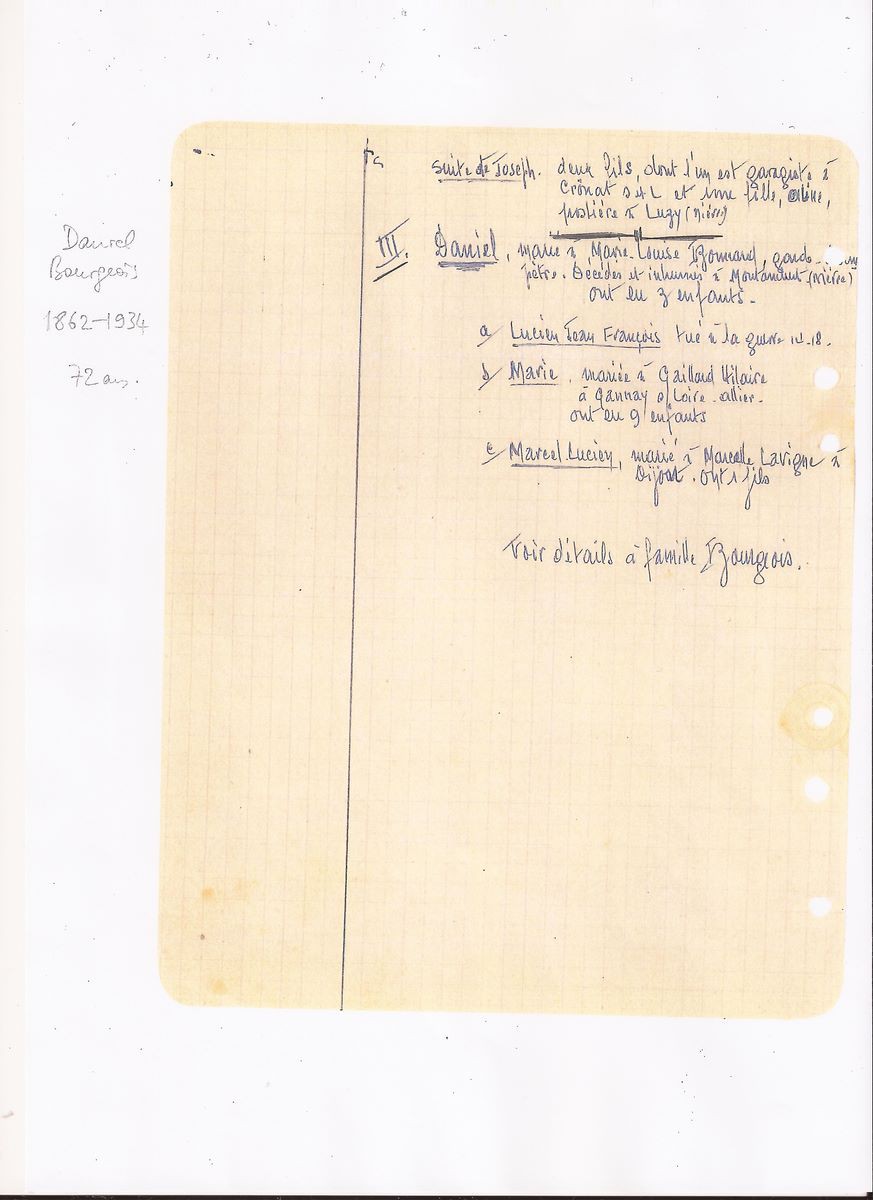 suite de Joseph. deux fils, dont l'un est garagiste à
Cronat S et L et une fille, Aline,
postière à Luzy (nièvre)
Daniel
Bourgeois
1862-1934
72 ans.
III. Daniel, marié à Marie-Louise Bonnard, garde
pètre. Décédés et inhumés à Montambert (nièvre)
ont eu 3 enfants.
a/ Lucien Jean François tué à la guerre 14-18.
b/ Marie, mariée à Gaillard Hilaire
à Gannay s/Loire - allier-
ont eu 9 enfants
c/ Marcel Lucien, marié à Marcelle Lavigne à
ont 1 fils
Voir détails à famille Bourgeois.